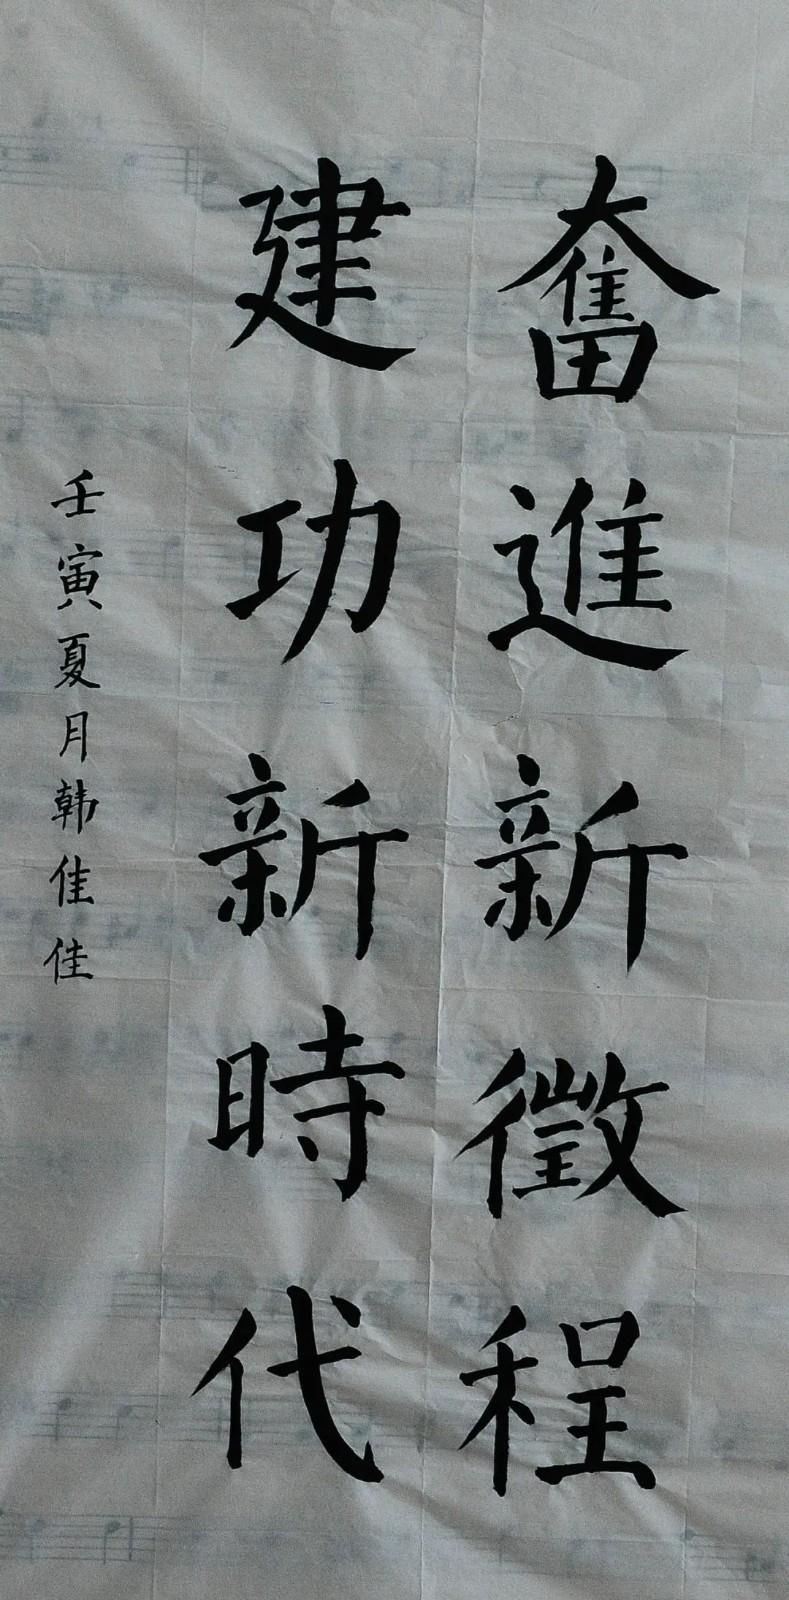 奮進新徵程
建功新時代
壬寅夏月韩佳佳